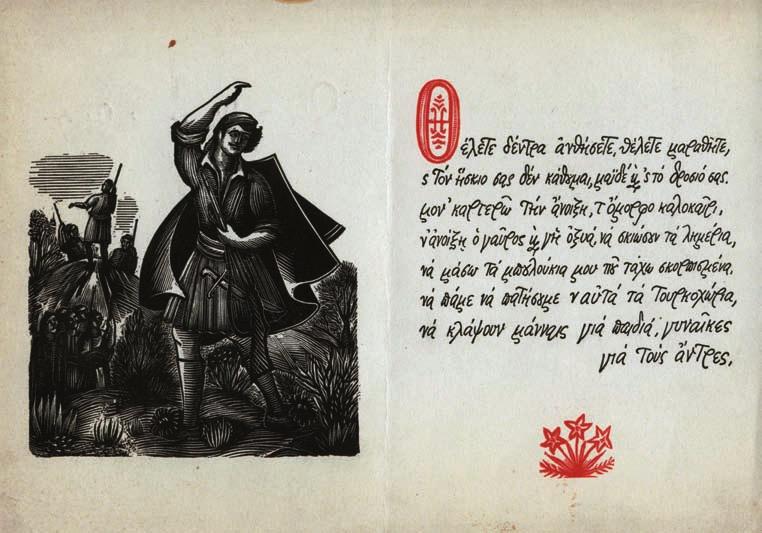 Θέλετε δέντρα ἀνθήσετε, θέλετε μαραθῆτε,
ς τὸν ἤσκιο σας δὲν κάθομαι, μαϊδέ κ̀ 'ς τὸ δροσιό σας.
μον' καρτερῶ τὴν ἄνοιξη, τ' ὄμορφο καλοκαῖρι,
ν' ἀνοίξῃ ὁ γαῦρος κ̀ γὴ ὀξυά, νὰ σκιώσουν τὰ λημέρια,
νὰ μάσω τὰ μπουλούκια μου ποῦ τἄχω σκορπισμένα.
νὰ πᾶμε νὰ πατήσουμε ν αὐτὰ τὰ Τουρκοχώρια,
νὰ κλάψουν μάννες γιὰ παιδιά, γυναῖκες
γιὰ τοὺς ἄντρες.